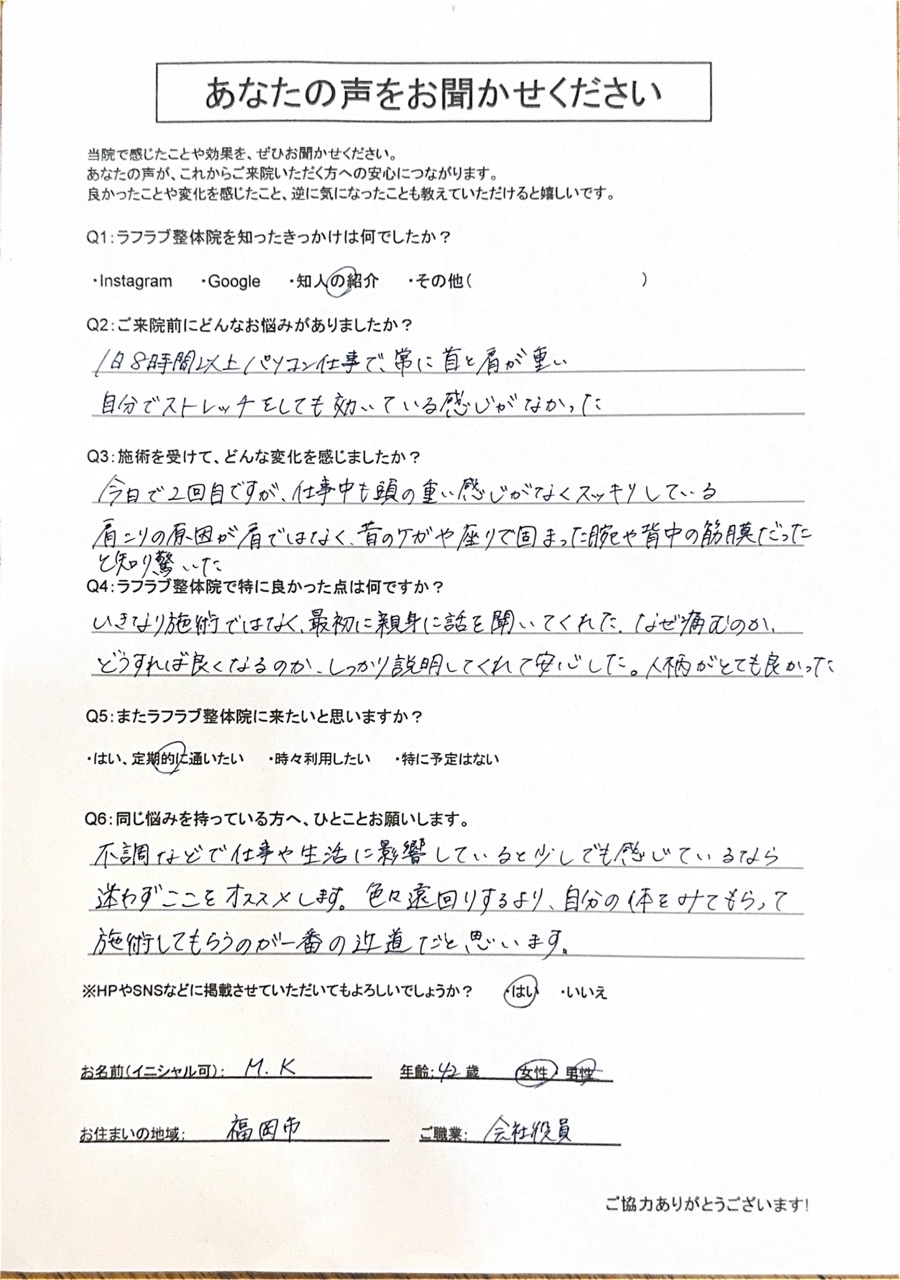 あなたの声をお聞かせください
当院で感じたことや効果を、ぜひお聞かせください。
あなたの声が、これからご来院いただく方への安心につながります。
良かったことや変化を感じたこと、逆に気になったことも教えていただけると嬉しいです。
Q1:ラフラブ整体院を知ったきっかけは何でしたか？
・Instagram ・Google ・知人の紹介 ・その他( )
Q2:ご来院前にどんなお悩みがありましたか？
1日8時間以上パソコン仕事で、常に首と肩が重い
自分でストレッチをしても効いている感じがなかった
Q3:施術を受けて、どんな変化を感じましたか？
今日で2回目ですが、仕事中も頭の重い感じがなくスッキリしている
肩こりの原因が肩ではなく、昔のケガや座りで固まった腕や背中の筋膜だった
と知り驚いた
Q4:ラフラブ整体院で特に良かった点は何ですか？
いきなり施術ではなく、最初に親身に話を聞いてくれた、なぜ痛むのか、
どうすれば良くなるのか、しっかり説明してくれて安心した。人柄がとても良かった
Q5:またラフラブ整体院に来たいと思いますか？
・はい、定期的に通いたい ・時々利用したい ・特に予定はない
Q6:同じ悩みを持っている方へ、ひとことお願いします。
不調などで仕事や生活に影響していると少しでも感じているなら
迷わずここをオススメします。色々遠回りするより、自分の体をみてもらって
施術してもらうのが一番の近道だと思います。
※HPやSNSなどに掲載させていただいてもよろしいでしょうか？ ・はい ・いいえ
お名前(イニシャル可): M.K 年齢:42歳 女性・男性
お住まいの地域: 福岡市 ご職業: 会社役員
ご協力ありがとうございます!